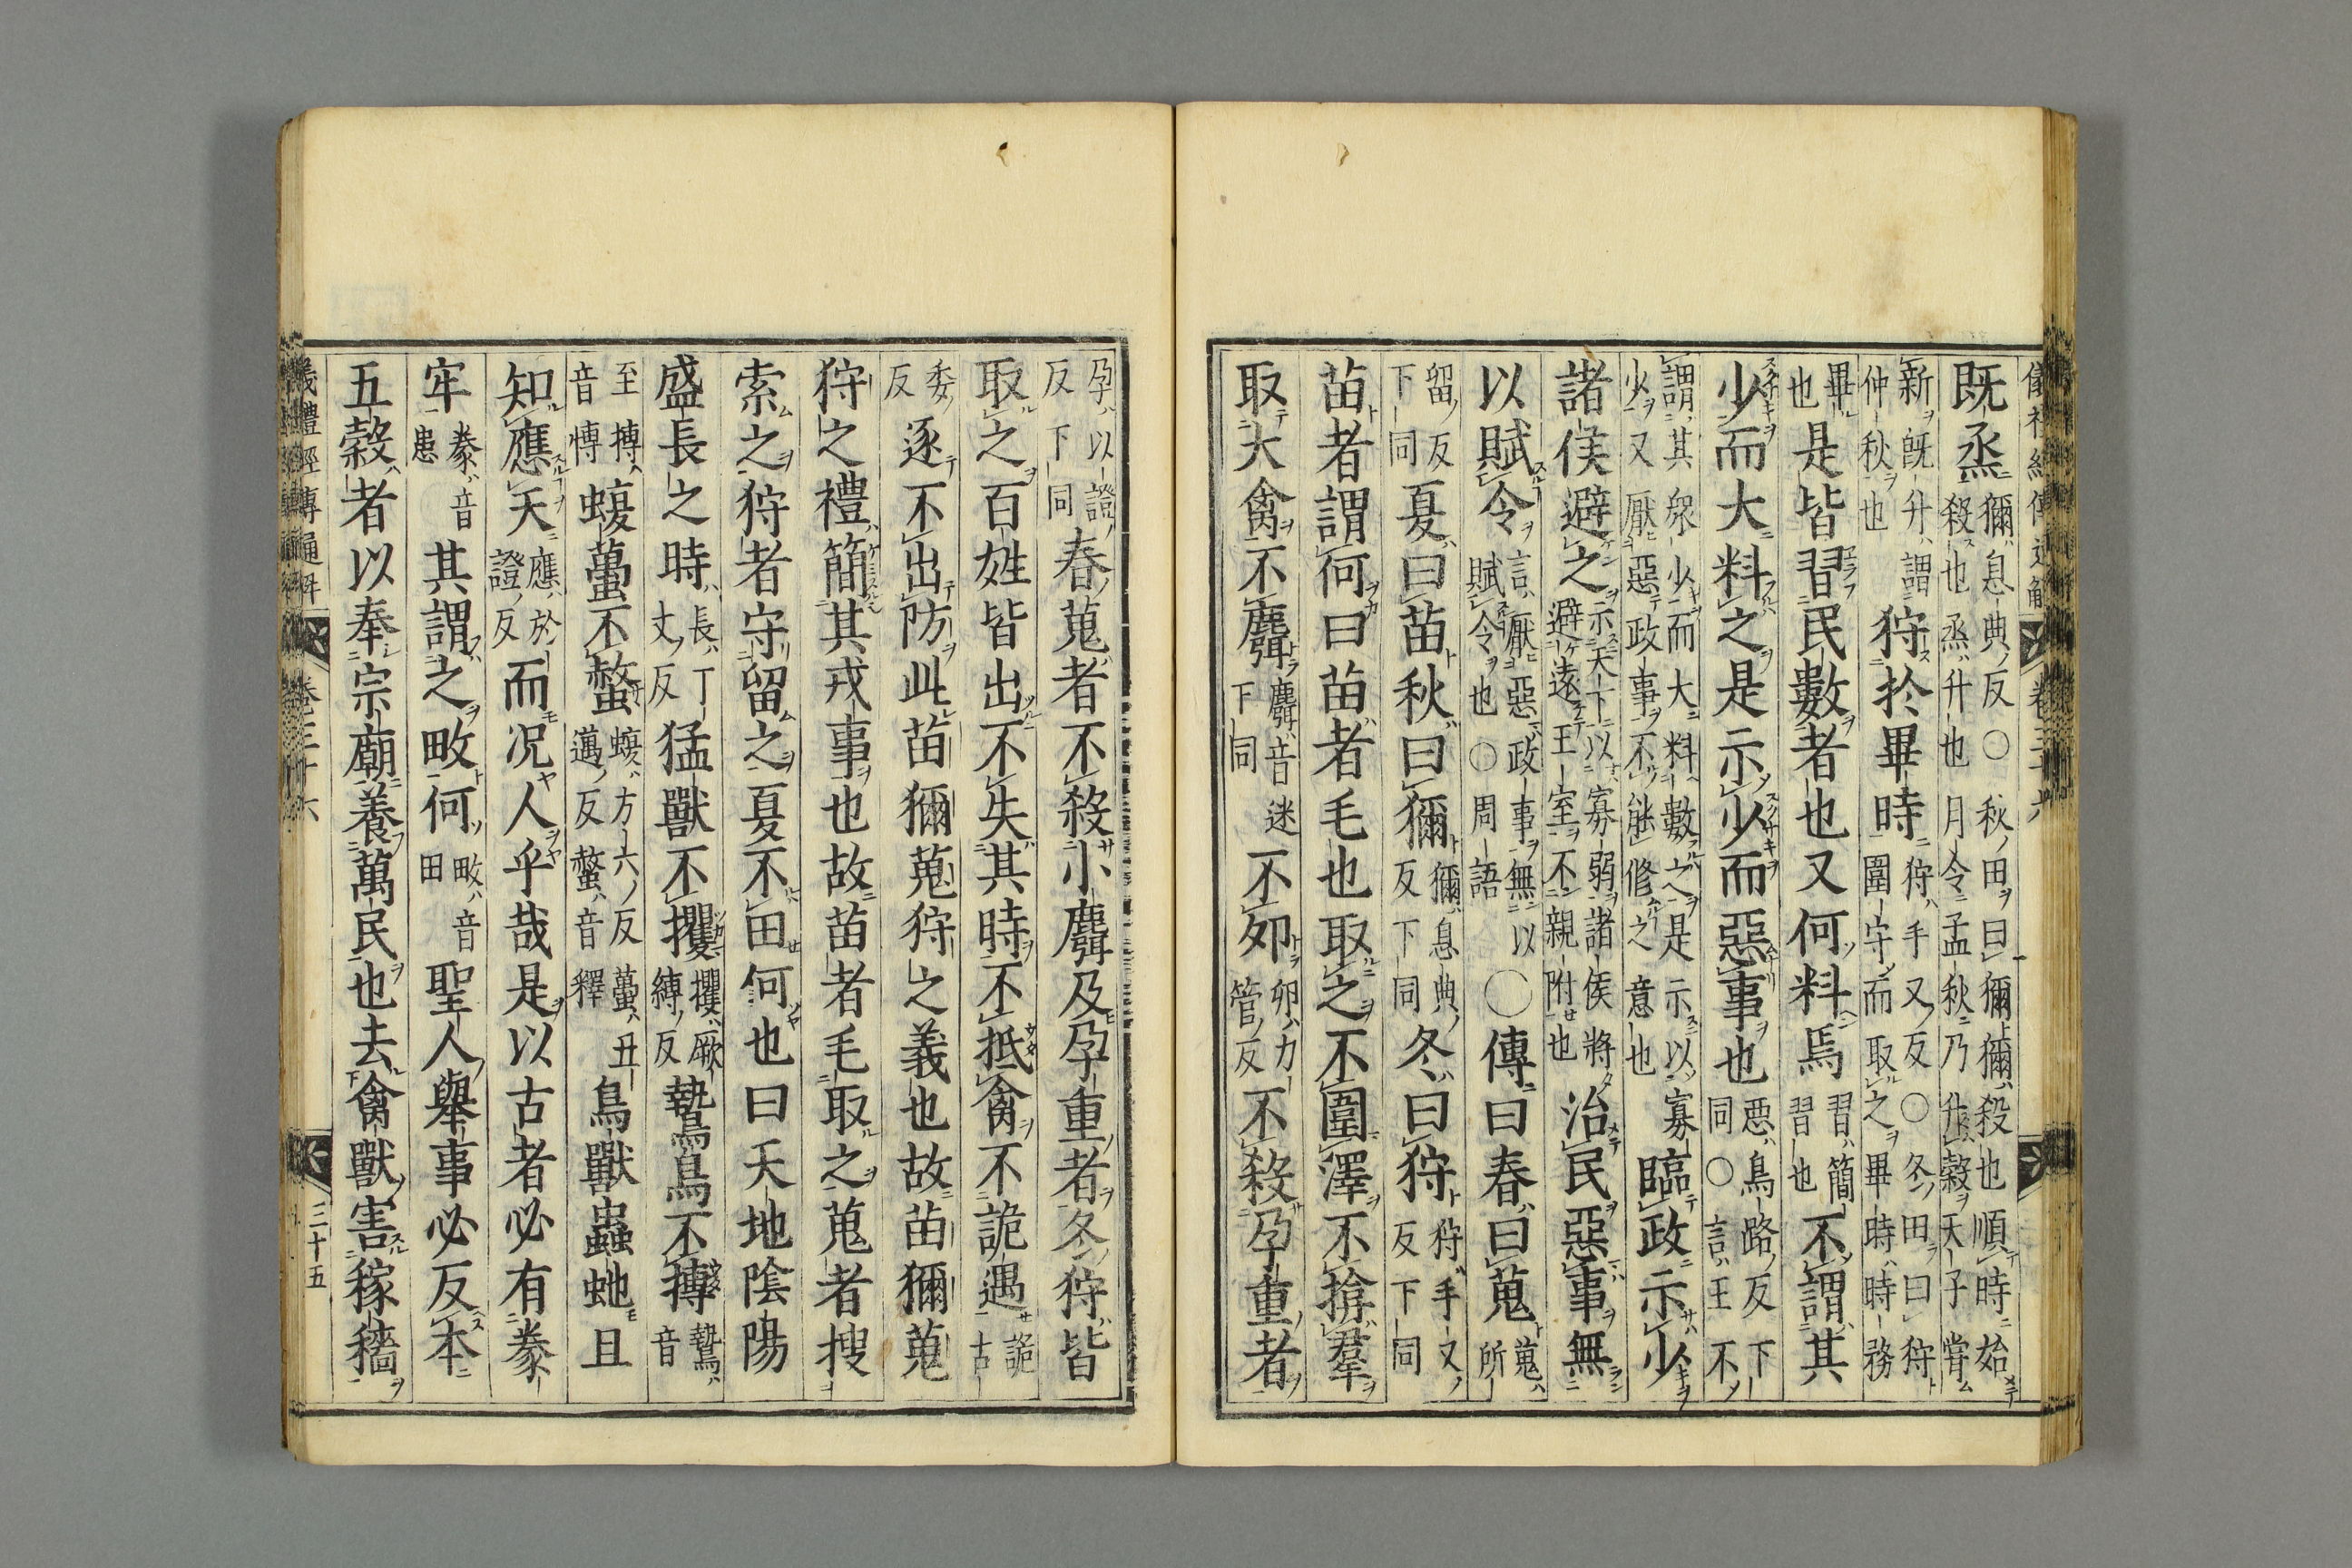 儀禮經傳通解 卷三十六
既烝獮息典反○秋田曰獮獮殺也順時始殺也烝升也月令孟秋乃升穀天子嘗
新既升謂仲秋也狩於畢時狩手又反○冬田曰狩圍守而取之畢時時務
畢也是皆習民數者也又何料焉習簡習也不謂其
少而大料之是示少而惡事也惡烏路反下同○言王不
謂其衆少而大料數之是示以寡少又厭惡政事不能修之意也臨政示少
諸侯避之示天下以寡弱諸侯將避遠王室不親附也治民惡事無
以賦令言厭惡政事無以賦令也○周語○傳曰春曰蒐蒐所
留反下同夏曰苗秋曰獮獮息典反下同冬曰狩狩手又反下同
苗者謂何曰苗者毛也取之不圍澤不揜羣
取大禽不麛麛音迷下同不卵卵力管反不殺孕重者
孕以證反下同春蒐者不殺小麛及孕重者冬狩皆
取之百姓皆出不失其時不抵禽不詭遇詭古
委反逐不出防此苗獮蒐狩之義也故苗獮蒐
狩之禮簡其戎事也故苗者毛取之蒐者搜
索之狩者守留之夏不田何也曰天地陰陽
盛長之時長丁丈反猛獸不攫攫厥縛反鷙鳥不搏鷙音
至搏音愽蝮蠆不螫蝮方六反蠆丑邁反螫音釋鳥獸蟲虵且
知應天應於證反而况人乎哉是以古者必有豢
牢豢音患其謂之畋何畋音田聖人舉事必反本
五穀者以奉宗廟養萬民也去禽獸害稼穡
儀禮經傳通解 卷三十六 三十五